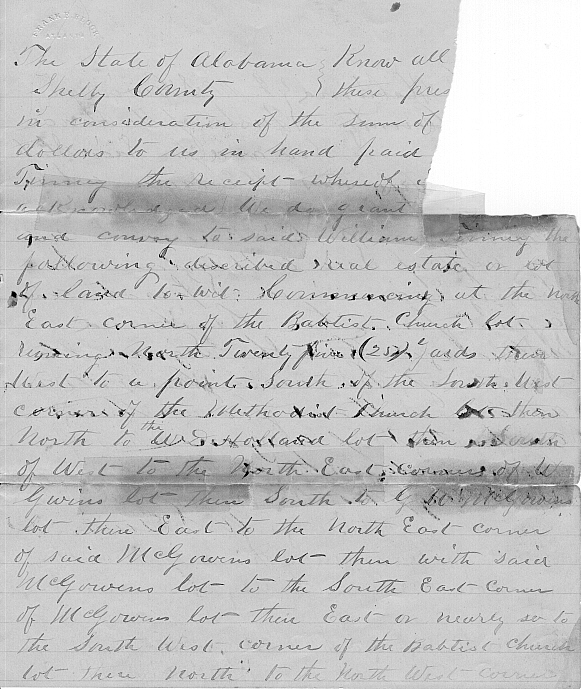 The State of Alabama } Know all
Shelby County } these pres
in consideration of the sum of
dollars to us in hand paid
Tinney the receipt whereof
acknowledged We do grant
and convey to said William Tinney the
following described real estate or lot
of land to-wit: Commencing at the north
East corner of the Babtist Church lot
runing North Twenty five (25) yards then
West to a point South of the South West
corner of the Methodist Church lot then
North to the W D Holland lot then South
of West to the North East corner of W
Gwins lot then South to McGowins
lot then East to the North East corner
of said McGowins lot then with said
McGowens lot to the South East Corner
of McGowens lot then East or nearly so to
the South West corner of the Babtist Church
lot there North to the North West corner